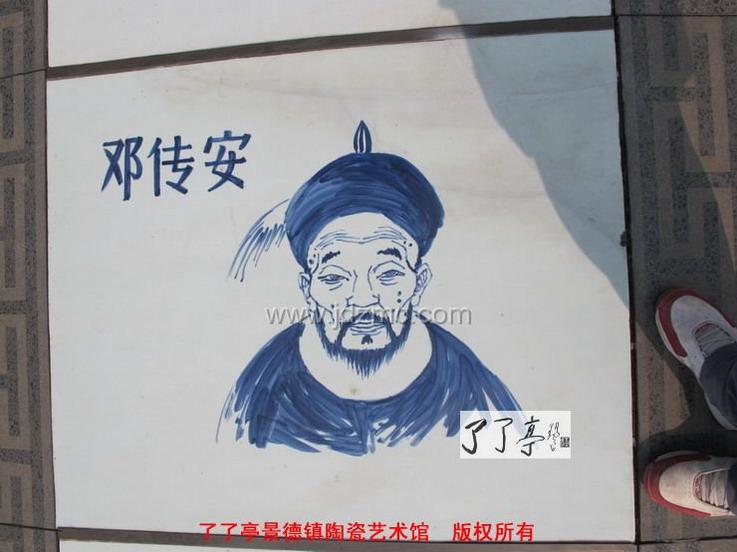 邓传安
www.jdzmc.com
了了亭
了了亭景德镇陶瓷艺术馆 版权所有